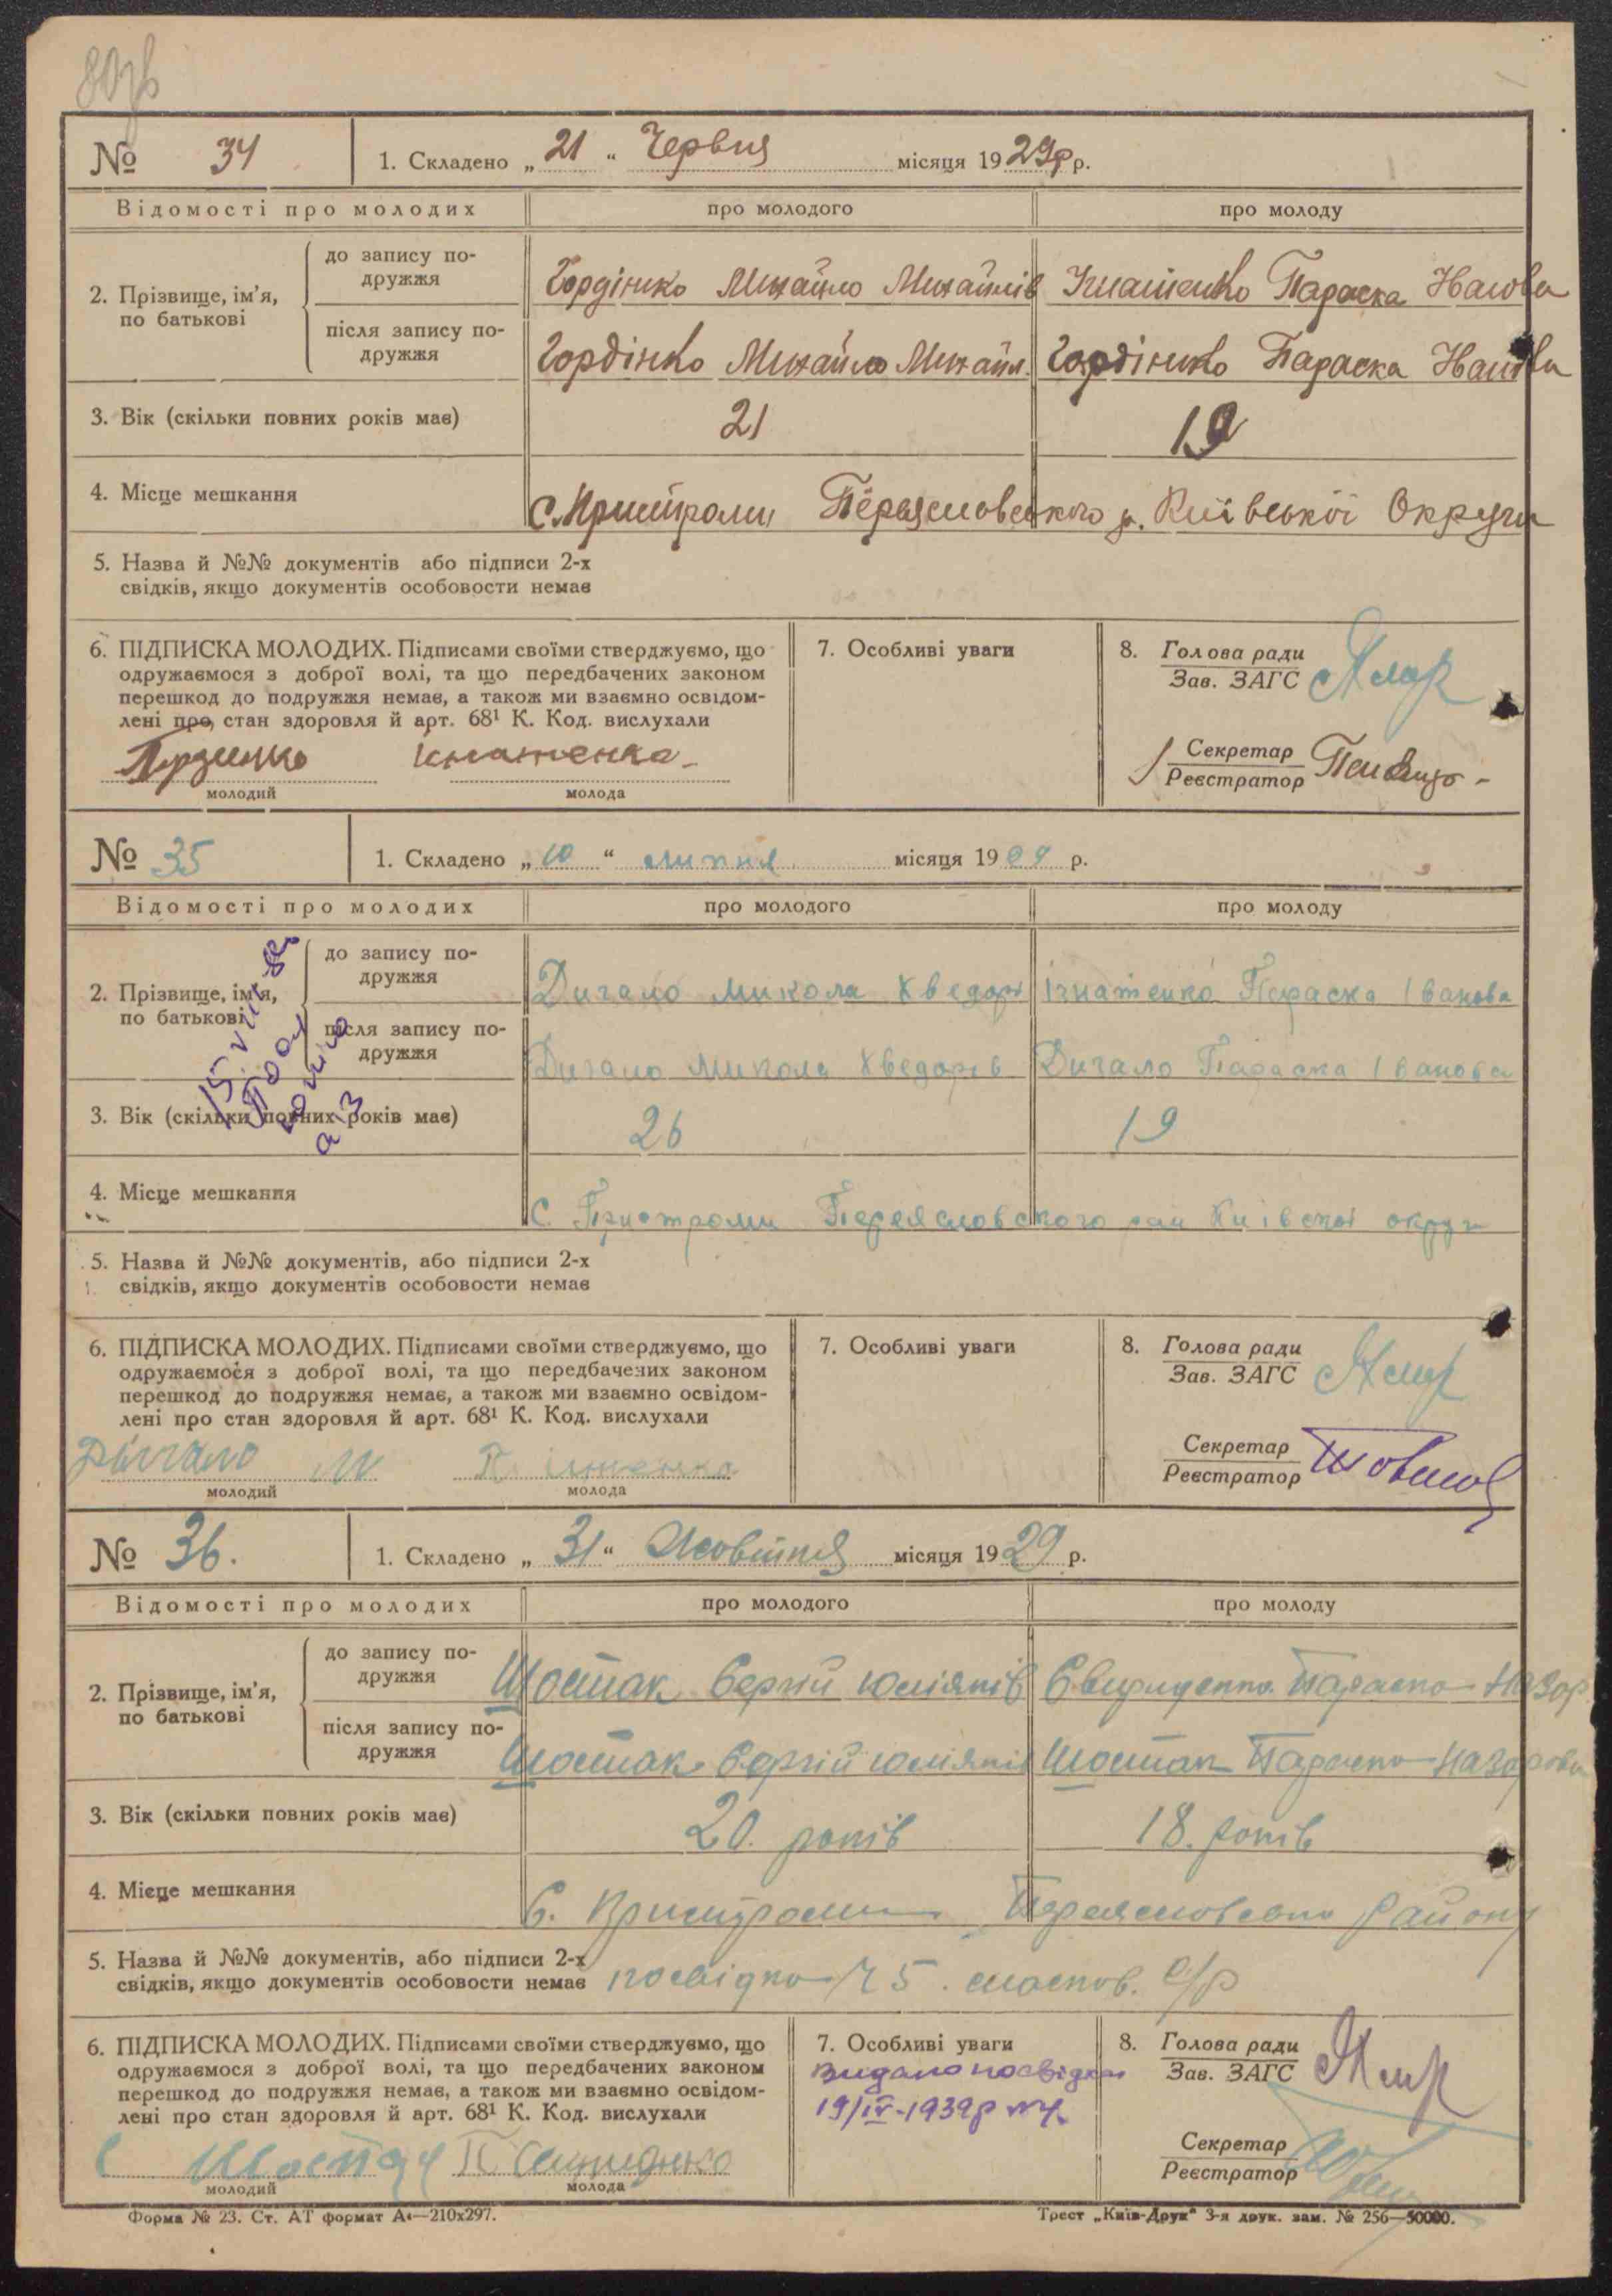 № 34 1. Складено „ 21 “ Червня місяця 1929р р.
Відомості про молодих про молодого про молоду
2. Прізвище, ім’я, по батькові
до запису по-
дружжя
Гордінко Михайло Михайлів Ігнатенко Параска
після запису по-
дружжя
Гордінко Михайло Михайл. Гордінко Параска
3. Вік (скільки повних років має) 21 19
4. Місце мешкання с. Пристроми Переяславського р. Київської Округи
5. Назва й №№ документів або підписи 2-х
свідків, якщо документів особовости немає
6. ПІДПИСКА МОЛОДИХ. Підписами своїми стверджуємо, що
одружаємося з доброї волі, та що передбачених законом
перешкод до подружжя немає, а також ми взаємно освідом-
лені про стан здоровля й арт. 68¹ К. Код. вислухали
молодий молода
7. Особливі уваги
8. Голова ради
Зав. ЗАГС
Секретар
Реєстратор
№ 35 1. Складено „ 10 “ липня місяця 1929 р.
Відомості про молодих про молодого про молоду
2. Прізвище, ім’я,
по батькові
до запису по-
дружжя
Дигало Микола Хведорі Ігнатенко Параска Іванова
після запису по-
дружжя
Дигало Микола Хведорів Дигало Параска Іванова
3. Вік (скільки повних років має) 26 19
4. Місце мешкання с. Пристроми Переяславского рай Київскої округи
5. Назва й №№ документів, або підписи 2-х
свідків, якщо документів особовости немає
6. ПІДПИСКА МОЛОДИХ. Підписами своїми стверджуємо, що
одружаємося з доброї волі, та що передбачених законом
перешкод до подружжя немає, а також ми взаємно освідом-
лені про стан здоровля й арт. 68¹ К. Код. вислухали
Дигало М
молодий молода
7. Особливі уваги
8. Голова ради
Зав. ЗАГС
Секретар
Реєстратор
№ 36. 1. Складено „ 31 “ Жовтня місяця 1929 р.
Відомості про молодих про молодого про молоду
2. Прізвище, ім’я,
по батькові
до запису по-
дружжя
Шостак Сергій Юліянів Свириденко Параска Назар
після запису по-
дружжя
Шостак Сергій Юліянів Шостак Параска Назарова
3. Вік (скільки повних років має) 20. років 18. років
4. Місце мешкання с. Пристроми Переяславсько Району
5. Назва й №№ документів, або підписи 2-х
свідків, якщо документів особовости немає с/р
6. ПІДПИСКА МОЛОДИХ. Підписами своїми стверджуємо, що
одружаємося з доброї волі, та що передбачених законом
перешкод до подружжя немає, а також ми взаємно освідом-
лені про стан здоровля й арт. 68¹ К. Код. вислухали
С Шостак
молодий молода
7. Особливі уваги
видано посвідку
19/IV-1939р
8. Голова ради
Зав. ЗАГС
Секретар
Реєстратор
Форма № 23. Ст. АТ формат А⁴—210х297. Трест „Київ-Друк“ 3-я друк. зам. № 256—50000.